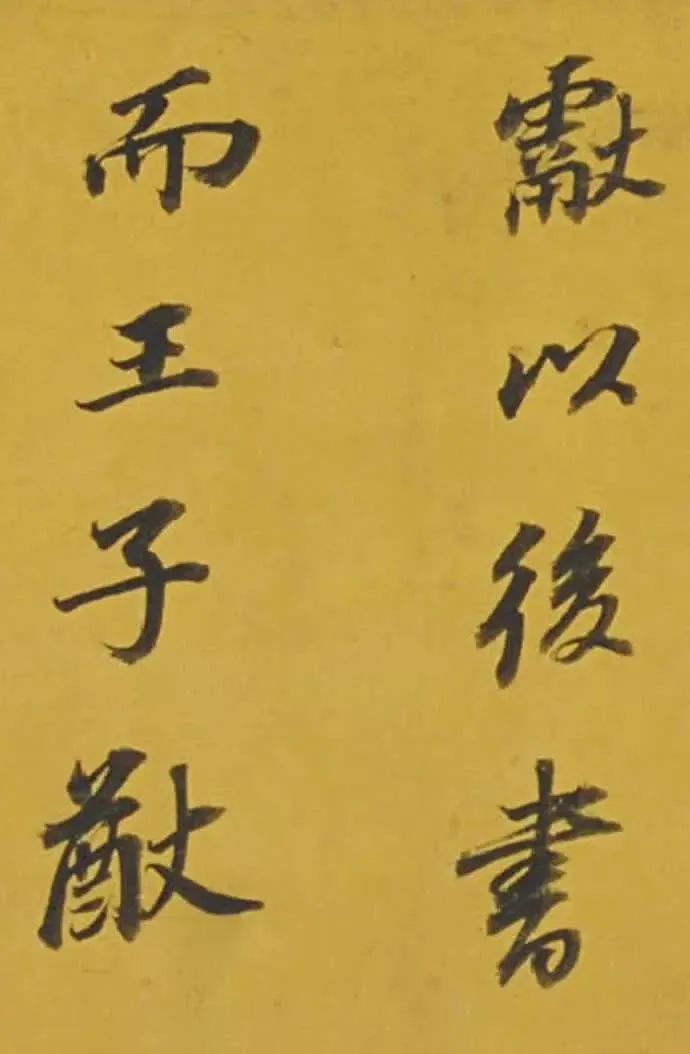 獻以後書
而王子猷